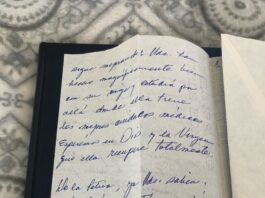 sigue mejorando. Uds. han
hecho magníficamente bien
con su viaje y estadía por
allá donde ella tiene
los mejores cuidados médicos.
Esperemos en Dios y la Virgen
que ella recupere totalmente.
De la Patria, ya Uds. sabían